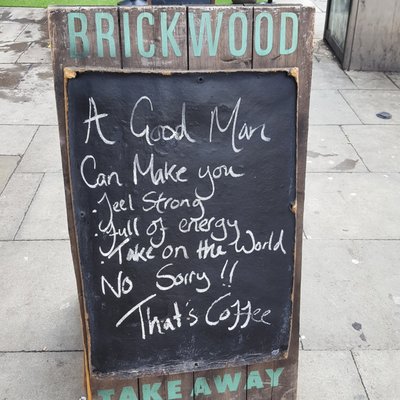 BRICKWOOD
A Good Man
Can Make you
. Feel Strong
. Full of energy
. Take on the World
No Sorry !!
That's Coffee
TAKE AWAY